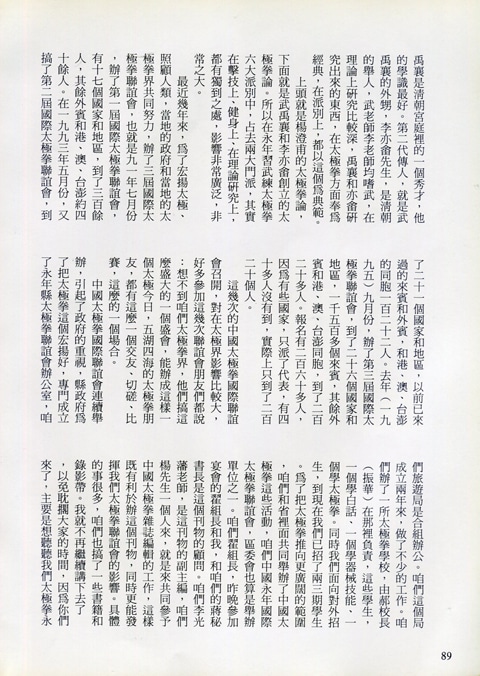 禹襄是清朝宮庭裡的一個秀才，他
的學識最好。第二代傳人，就是武
禹襄的外甥，李亦畬先生，是清朝
的舉人，武老師李老師均嗜武，在
理論上研究比較深，禹襄和亦畬研
究出來的東西，在太極拳方面奉爲
經典，在派別上，都以這個爲典範。
上頭就是楊澄甫的太極拳論，
下面就是武禹襄和李亦畬創立的太
極拳論。所以在永年習武練太極拳
六大派別中，占去兩大門派，其實
在擊技上、健身上、在理論研究上，
都有獨到之處，影響非常廣泛，非
常之大。
最近幾年來，爲了宏揚太極、
照顧人類，當地的政府和當地的太
極拳界共同努力，辦了三屆國際太
極拳聯誼會，也就是九一年七月份
，辦了第一屆國際太極拳聯誼會，
有十七個國家和地區，到了三百餘
人，其餘外賓和港、澳、台澎約四
十餘人。在一九九三年五月份，又
搞了第二屆國際太極拳聯誼會，到
了二十一個國家和地區，以前已來
過的來賓和外賓，和港、澳、台澎
的同胞一百二十二人。去年（一九
九五）九月份，辦了第三屆國際太
極拳聯誼會，到了二十六個國家和
地區，一千五百多個來賓，其餘外
賓和港、澳、台澎同胞，到了二百
二十多人。報名有二百六十多人，
因爲有些國家，只派了代表，有四
十多人沒有到，實際上只到了二百
二十個人。
這幾次的中國太極拳國際聯誼
會召開，對在太極界影響比較大，
好多參加這幾次聯誼會朋友們都說
：想不到咱們太極拳界，他們搞這
麼盛大的一個盛會，能辦成這樣一
個太極今日，五湖四海的太極拳朋
友，都有這麼一個交友、切磋、比
賽，這麼的一個場合。
中國太極拳國際聯誼會連續舉
辦，引起了政府的重視，縣政府爲
了把太極拳這個宏揚好，專門成立
了永年縣太極拳聯誼會辦公室，咱
們旅遊局是合組辦公。咱們這個局
成立兩年來，做了不少的工作。咱
們辦了一所太極拳學校，由郝校長
（振華）在那裡負責，這些學生，
一個學白話、一個學器械技能、一
個學太極拳。同時我們面向對外招
生，到現在我們已招了兩三期學生
。爲了把太極拳推向更廣闊的範圍
，咱們和省裡面共同舉辦了中國太
極拳這些活動，咱們中國永年國際
太極拳聯誼會，區委會也算是舉辦
單位之一。咱們翟組長，昨晚參加
宴會的翟組長和我，和咱們的蔣秘
書長是這個刊物的顧問。咱們李光
藩老師，是這刊物的副主編，咱們
楊先生一個人來，就是來共同參予
中國太極拳雜誌編輯的工作，這樣
既有利於辦這個刊物，同時更能發
揮我們太極拳聯誼會的影響。具體
的事很多，咱們也搞了一些書籍和
錄影帶。我就不再繼續講下去了
，以免耽擱大家的時間，因爲你們
來了，主要是想聽聽我們太極拳永
89